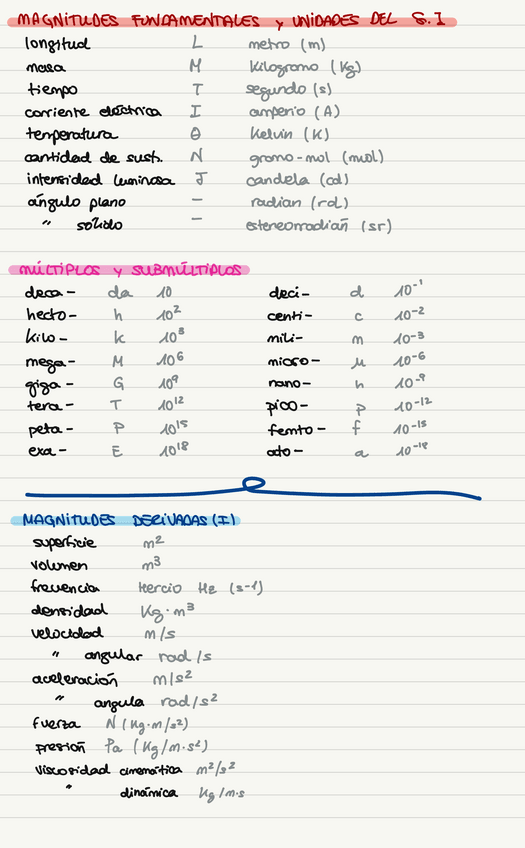 MAGNITUDES FUNDAMENTALES y UNIDADES DEL S.I
longitud L metro (m)
masa M Kilogramo (Kg)
tiempo T segundo (s)
corriente eléctrica I amperio (A)
temperatura θ Kelvin (K)
cantidad de sust. N gramo-mol (mol)
intensidad luminosa J candela (cd)
ángulo plano — radian (rad)
" sólido — estereorradián (sr)
MÚLTIPLOS y SUBMÚLTIPLOS
deca- da 10 deci- d 10⁻¹
hecto- h 10² centi- c 10⁻²
kilo- k 10³ mili- m 10⁻³
mega- M 10⁶ micro- μ 10⁻⁶
giga- G 10⁹ nano- n 10⁻⁹
tera- T 10¹² pico- p 10⁻¹²
peta- P 10¹⁵ femto- f 10⁻¹⁵
exa- E 10¹⁸ ato- a 10⁻¹⁸
MAGNITUDES DERIVADAS (I)
superficie m²
volumen m³
frecuencia Hercio Hz (s⁻¹)
densidad Kg·m³
velocidad m/s
" angular rad/s
aceleración m/s²
" angula rad/s²
fuerza N (Kg·m/s²)
presión Pa (Kg/m·s²)
viscosidad cinemática m²/s²
" dinámica Kg/m·s